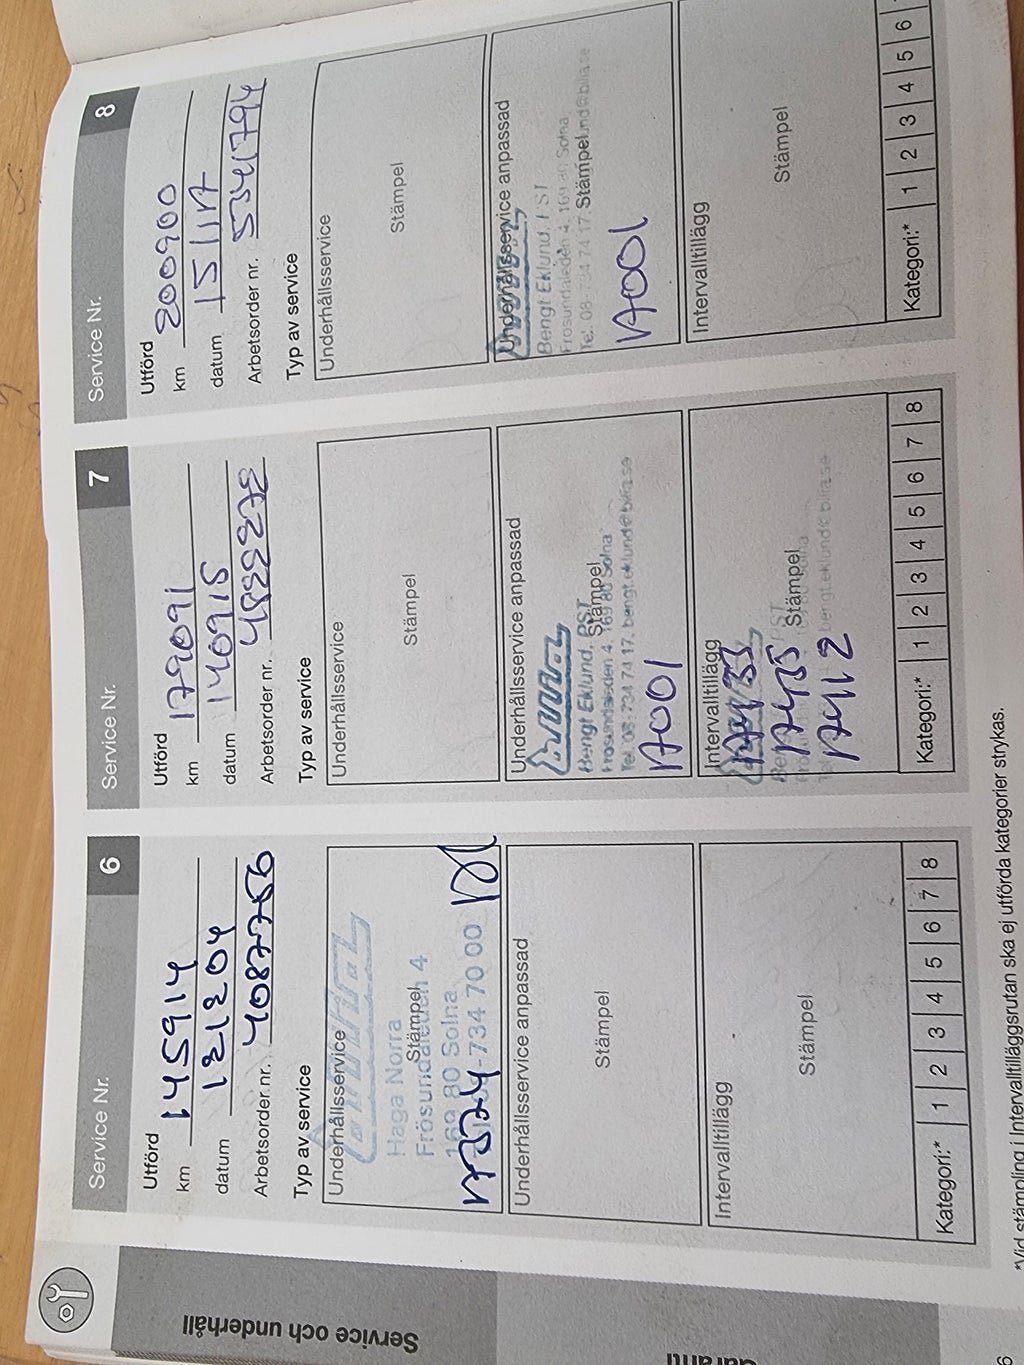 Service och underhåll
Service Nr. 6
Utförd
km 145914
datum 121204
Arbetsorder nr. 4087756
Typ av service
Underhållsservice
Haga Norra
Stämpel
Frösundaleden 4
169 80 Solna
08-734 70 00
Underhållsservice anpassad
Stämpel
Intervalltillägg
Stämpel
Kategori:* 1 2 3 4 5 6 7 8
Service Nr. 7
Utförd
km 179091
datum 140915
Arbetsorder nr.
Typ av service
Underhållsservice
Stämpel
Underhållsservice anpassad
Bengt Eklund, PST
Stämpel
Frösundaleden 4, 169 80 Solna
Tel. 08-734 74 17, bengt.eklund@bilia.se
A001
Intervalltillägg
Stämpel
bengt.eklund@bilia.se
A4112
Kategori:* 1 2 3 4 5 6 7 8
Service Nr. 8
Utförd
km 200900
datum
Arbetsorder nr. 5341794
Typ av service
Underhållsservice
Stämpel
Underhållsservice anpassad
Bengt Eklund, PST
Frösundaleden 4, 169 80 Solna
Tel. 08-734 74 17
Stämpel
A001
Intervalltillägg
Stämpel
Kategori:* 1 2 3 4 5 6
*Vid stämpling i Intervalltilläggsrutan ska ej utförda kategorier strykas.